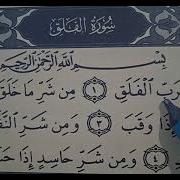 سُورَةُ الفَلَقِ
بِسْمِ ٱللَّهِ ٱلرَّحْمَٰنِ ٱلرَّحِيمِ
رَبِّ ٱلْفَلَقِ ١ مِن شَرِّ مَا خَلَقَ
وَقَبَ ٣ وَمِن شَرِّ
٤ وَمِن شَرِّ حَاسِدٍ إِذَا